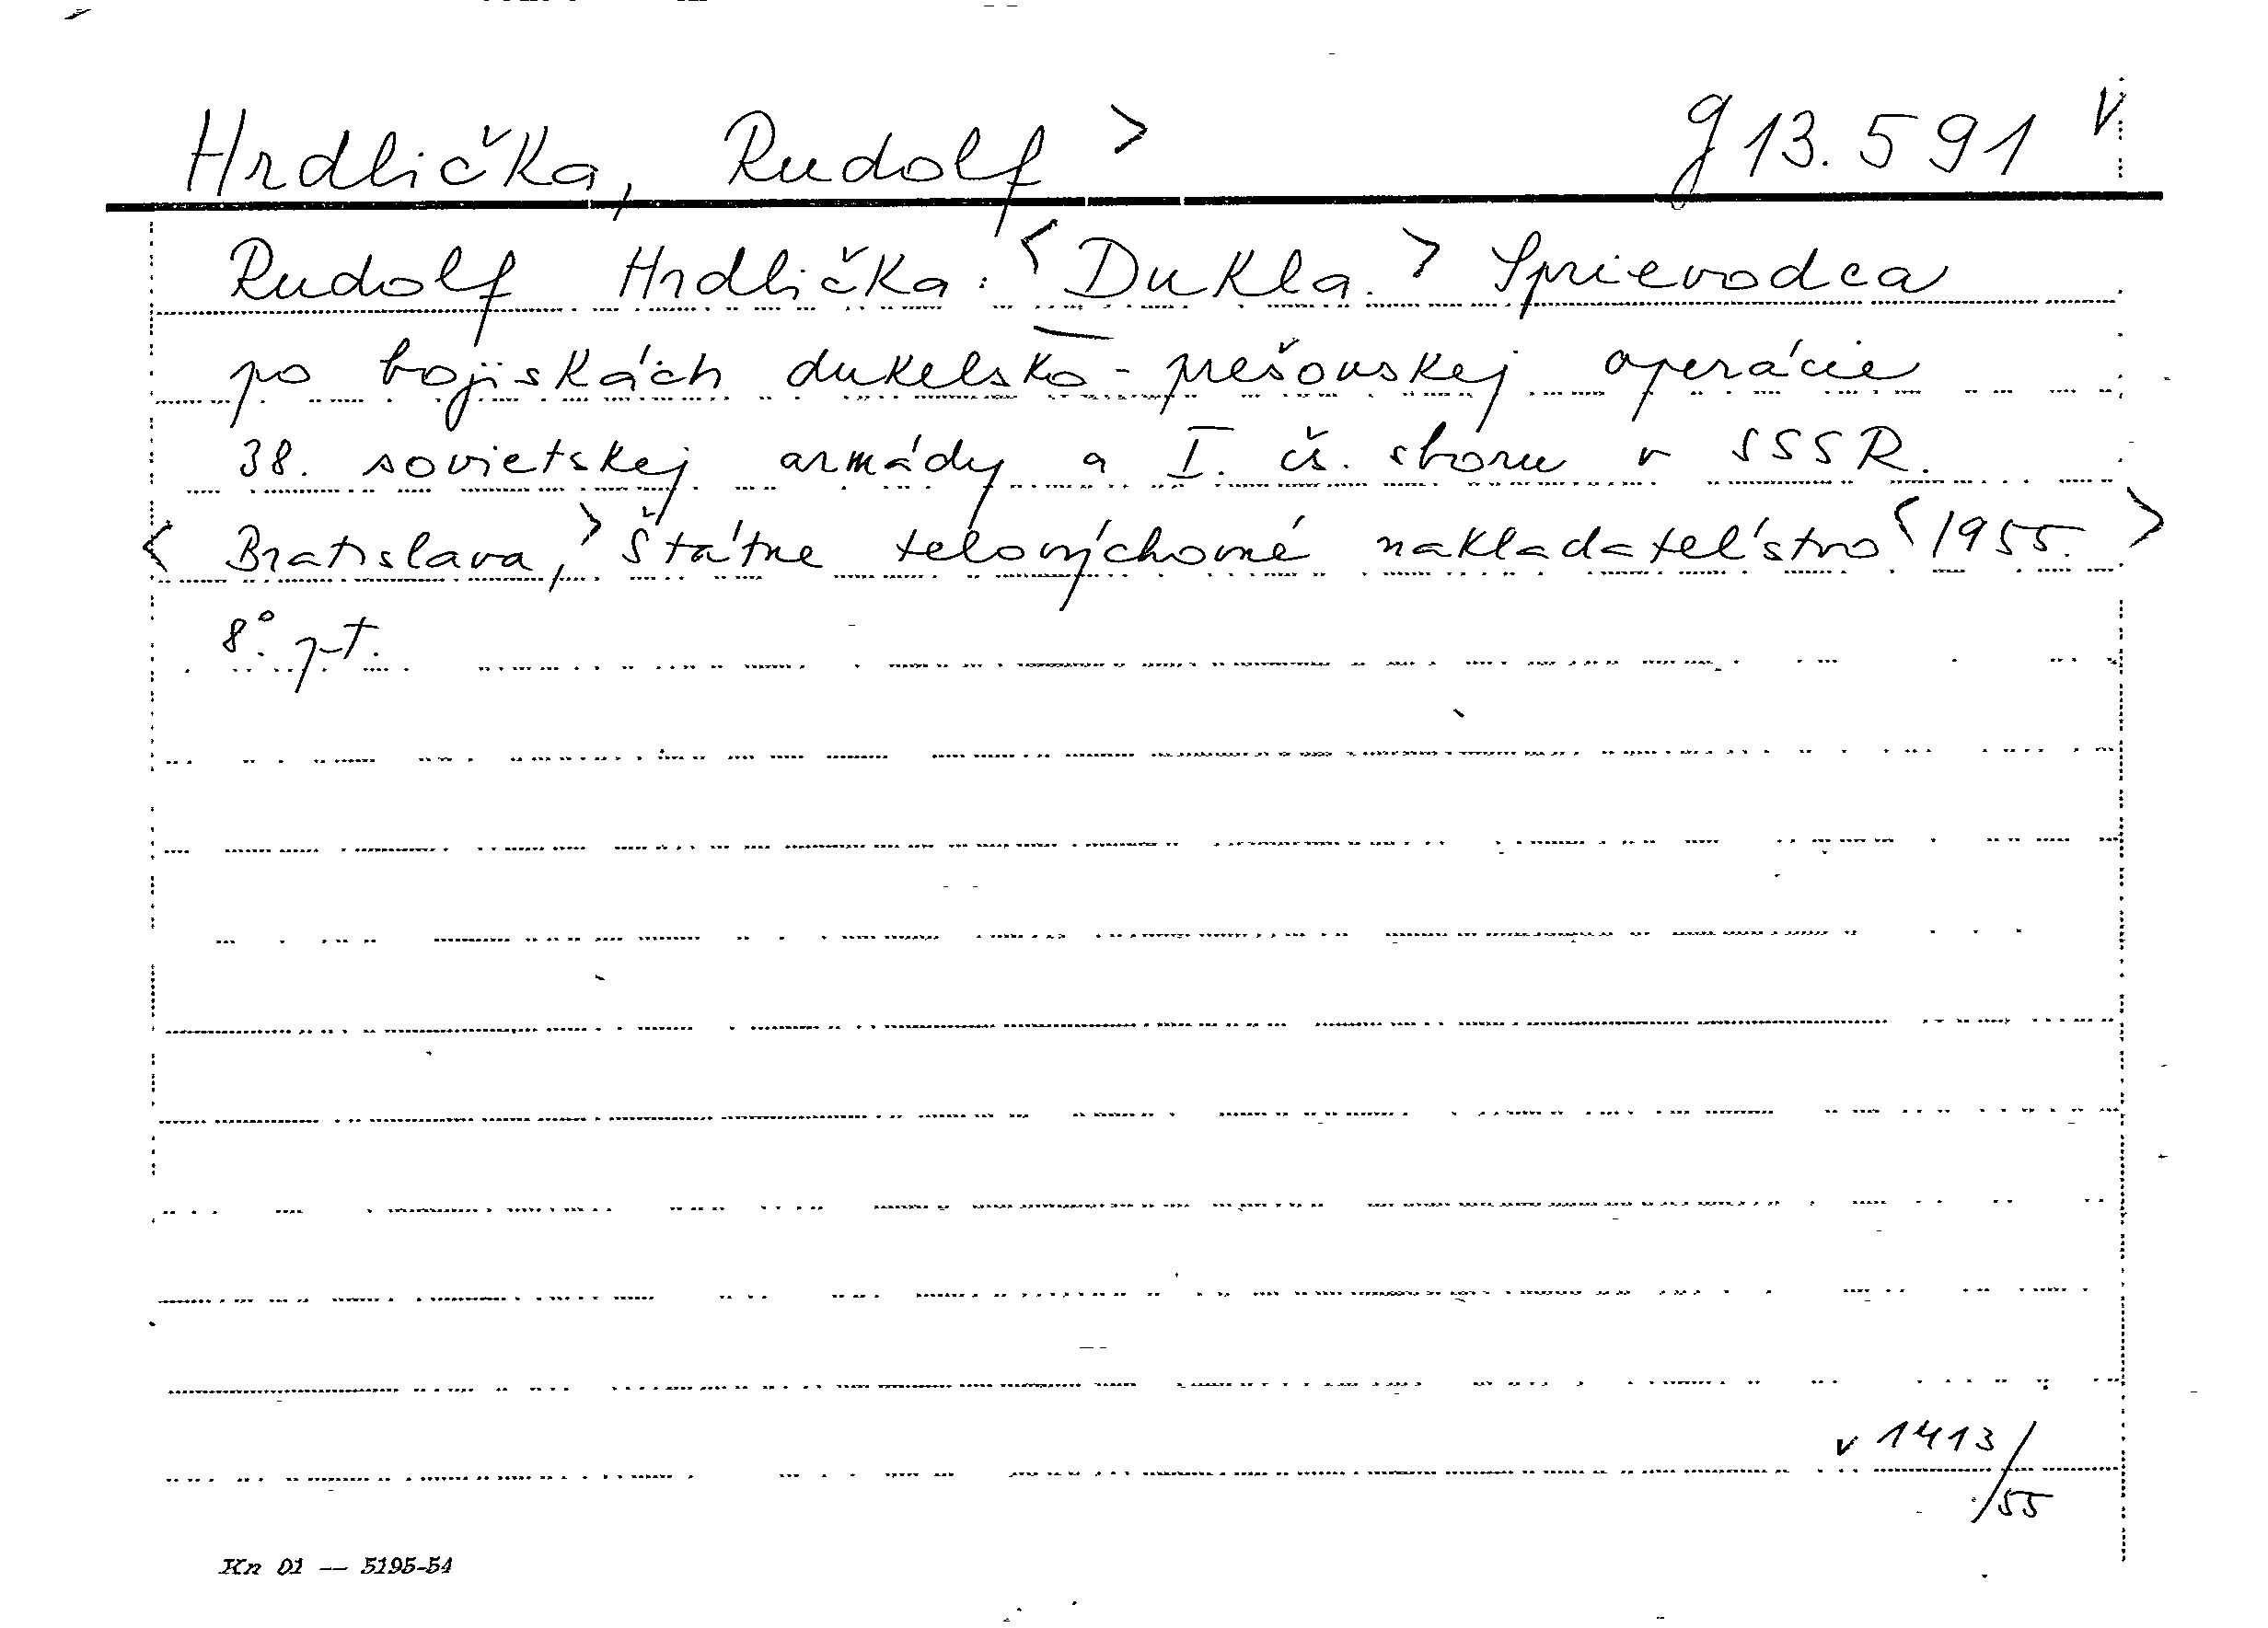 Hrdlička, Rudolf > g 13.591 v
Rudolf Hrdlička: <Dukla.> Sprievodca
po bojiskách dukelsko-prešovskej operácie
38. sovietskej armády a I. čs. sboru v SSSR.
<Bratislava,> Štátne telovýchovné nakladateľstvo <1955.>
8°. pt.
v 1413/
/55
Kn 01 — 5195-54